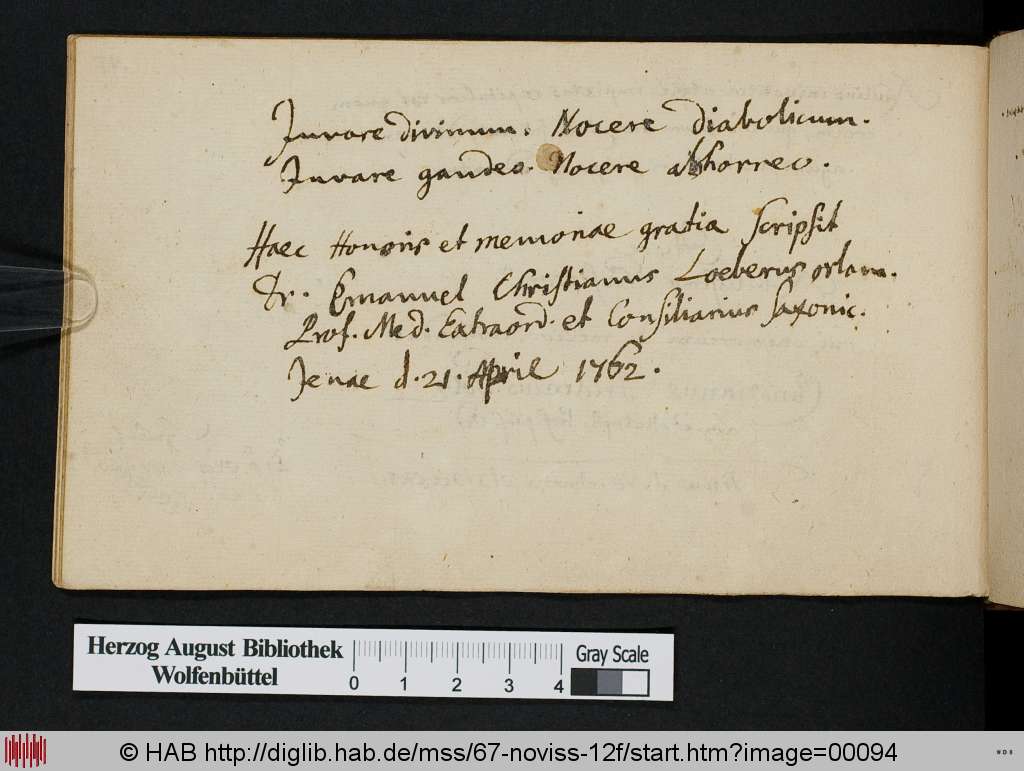 Juvare divinum. Nocere diabolicum.
Juvare gaudeo. Nocere abhorreo.
Haec Honoris et memoriae gratia scripsit
Dr. Emanuel Christianus Loeberus orlam.
Prof. Med. Extraord. et Consiliarius Saxonic.
Jenae d. 21. April 1762.
Herzog August Bibliothek
Wolfenbüttel
Gray Scale
0 1 2 3 4
© HAB http://diglib.hab.de/mss/67-noviss-12f/start.htm?image=00094